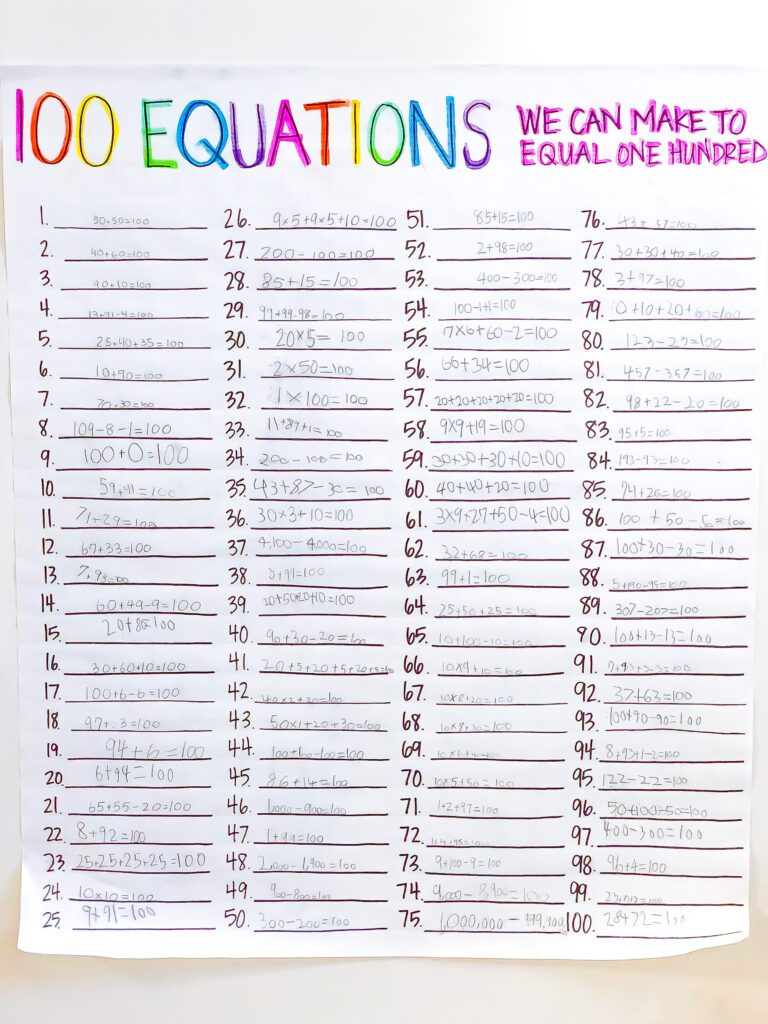 100 EQUATIONS
WE CAN MAKE TO
EQUAL ONE HUNDRED
1. 50+50=100
2. 40+60=100
3. 90+10=100
4. 13+91-4=100
5. 25+40+35=100
6. 10+90=100
7.
8. 109-8-1=100
9. 100+0=100
10. 59+41=100
11. 71+29=100
12. 67+33=100
13. 7+93=100
14. 60+49-9=100
15. 20+80=100
16. 30+60+10=100
17. 100+6-6=100
18. 97+03=100
19. 94+6=100
20. 6+94=100
21. 65+55-20=100
22. 8+92=100
23. 25+25+25+25=100
24. 10×10=100
25. 9+91=100
26. 9×5+9×5+10=100
27. 200-100=100
28. 85+15=100
29. 99+99-98=100
30. 20×5=100
31. 2×50=100
32. 1×100=100
33. =100
34. 200-100=100
35. 43+87-30=100
36. 30×3+10=100
37. 4,100-4,000=100
38. =100
39. 20+50+20+10=100
40. 90+30-20=100
41. 20+5+20+5+20+
42. 40×2+20=100
43. 50×1+20+30=100
44. 100+100-100=100
45. 86+14=100
46. 1,000-900=100
47. 1+99=100
48. 2,000-1,900=100
49. 900-800=100
50. 300-200=100
51. 85+15=100
52. 2+98=100
53. 400-300=100
54. 100-1+1=100
55. =100
56. 66+34=100
57. 20+20+20+20+20=100
58. 9×9+19=100
59. 30+30+30+10=100
60. 40+40+20=100
61. 3×9+27+50-4=100
62. 32+68=100
63. 99+1=100
64. 25+50+25=100
65. 10+100-10=100
66. 10×9+10=100
67. 10×8+20=100
68. =100
69.
70. 10×5+50=100
71. 1+2+97=100
72.
73. 9+100-9=100
74. 9,000-8,900=100
75. 1,000,000-999,900
76. 43+57=100
77. 30+30+40=100
78. 3+97=100
79. 10+10+20+60=100
80. =100
81. 457-357=100
82. 98+22-20=100
83. 95+5=100
84. 193-93=100
85. 74+26=100
86. 100+50-50=100
87. 100+30-30=100
88. 5+190-95=100
89. 307-207=100
90. 100+13-13=100
91.
92. 37+63=100
93. 100+90-90=100
94. 8+93+1-2=100
95. 122-22=100
96. 50+100-50=100
97. 400-300=100
98. 96+4=100
99.
100. 28+72=100